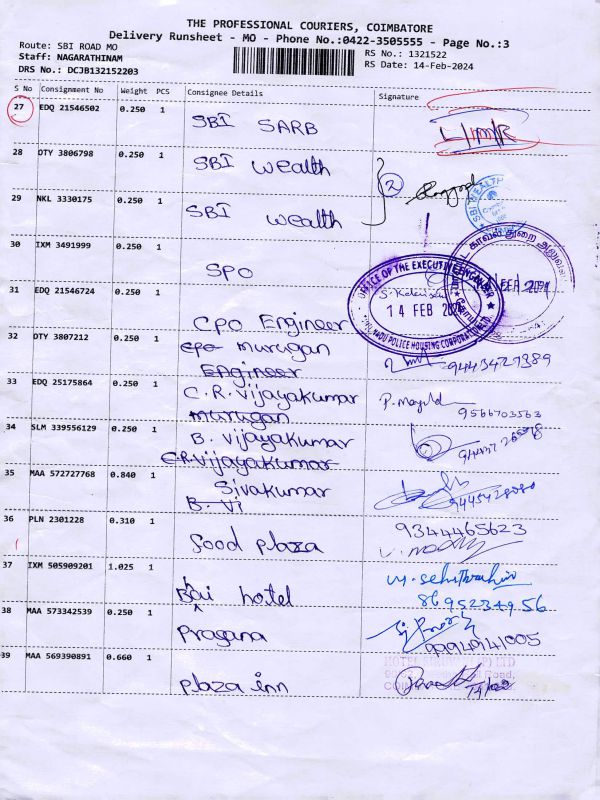 THE PROFESSIONAL COURIERS, COIMBATORE
Delivery Runsheet - MO - Phone No.:0422-3505555 - Page No.:3
Route: SBI ROAD MO
Staff: NAGARATHINAM
DRS No.: DCJB132152203
RS No.: 1321522
RS Date: 14-Feb-2024
S No Consignment No Weight PCS Consignee Details Signature
27 EDQ 21546502 0.250 1 SBI SARB
28 DTY 3806798 0.250 1 SBI Wealth 2
29 NKL 3330175 0.250 1 SBI Wealth
SBI WEALTH
30 IXM 3491999 0.250 1 SPO
காவல் துறை
OFFICE OF THE EXECUTIVE ENGINEER
14 FEB
POLICE HOUSING CORPORATION
31 EDQ 21546724 0.250 1 CPO Engineer
32 DTY 3807212 0.250 1 CPO Murugan
Engineer
9443427389
33 EDQ 25175864 0.250 1 C.R. Vijayakumar
Murugan
9566703563
34 SLM 339556129 0.250 1 B. Vijayakumar
C.R. Vijayakumar
35 MAA 572727768 0.840 1 Sivakumar
B. Vi
36 PLN 2301228 0.310 1 Good plaza
9344465623
37 IXM 505909201 1.025 1 Bai hotel
8695234956
38 MAA 573342539 0.250 1 Pragana
39 MAA 569390891 0.660 1 plaza inn